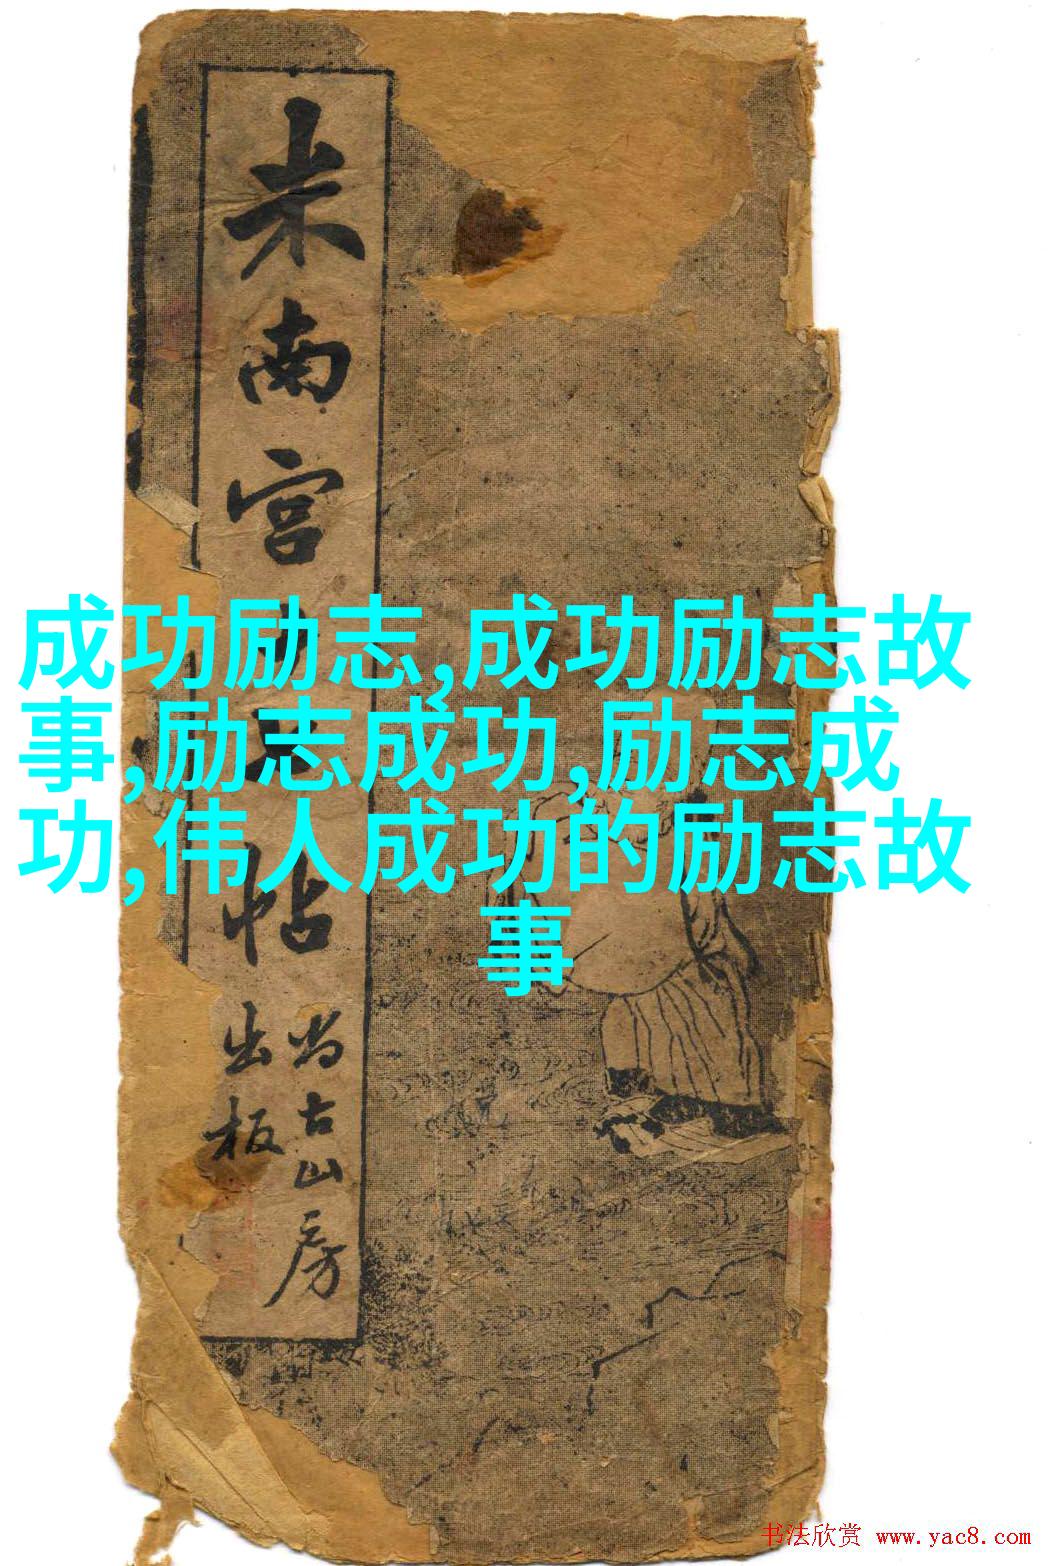 米南宫
帖
尚古山房
出板
成功励志,成功励志故
事,励志成功,励志成
功,伟人成功的励志故
事
书法欣赏 www.yac8.com